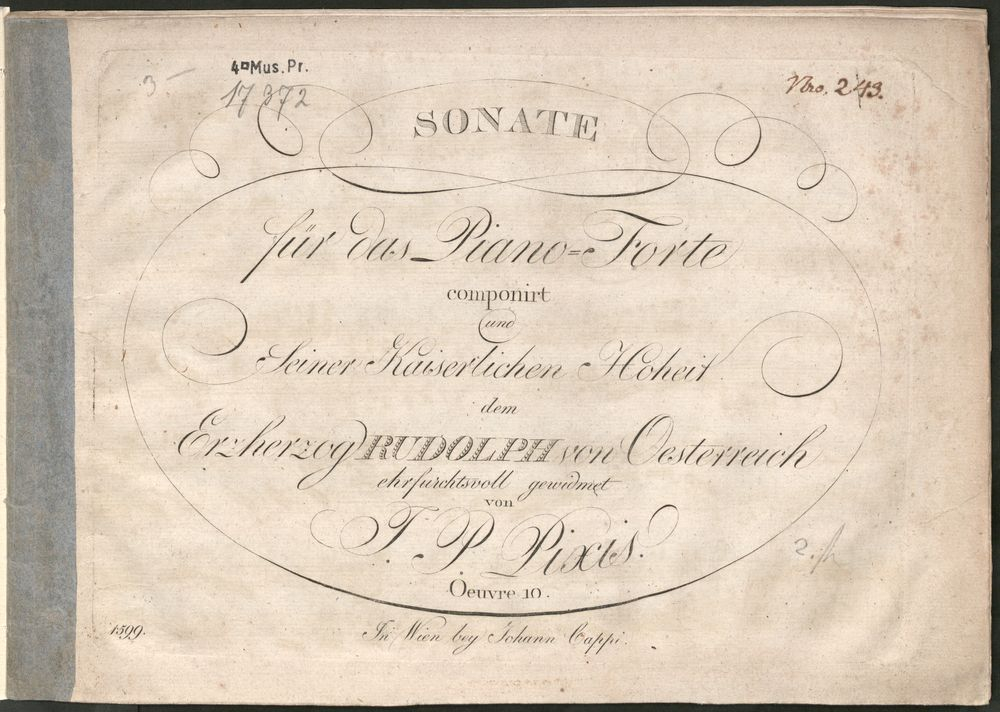 3-
4° Mus. Pr.
17372
Nro. 243.
SONATE
für das Piano=Forte
componirt
und
Seiner Kaiserlichen Hoheit
dem
Erzherzog RUDOLPH von Oesterreich
ehrfurchtsvoll gewidmet
von
J. P. Pixis.
Oeuvre 10.
1599.
In Wien bey Johann Cappi.